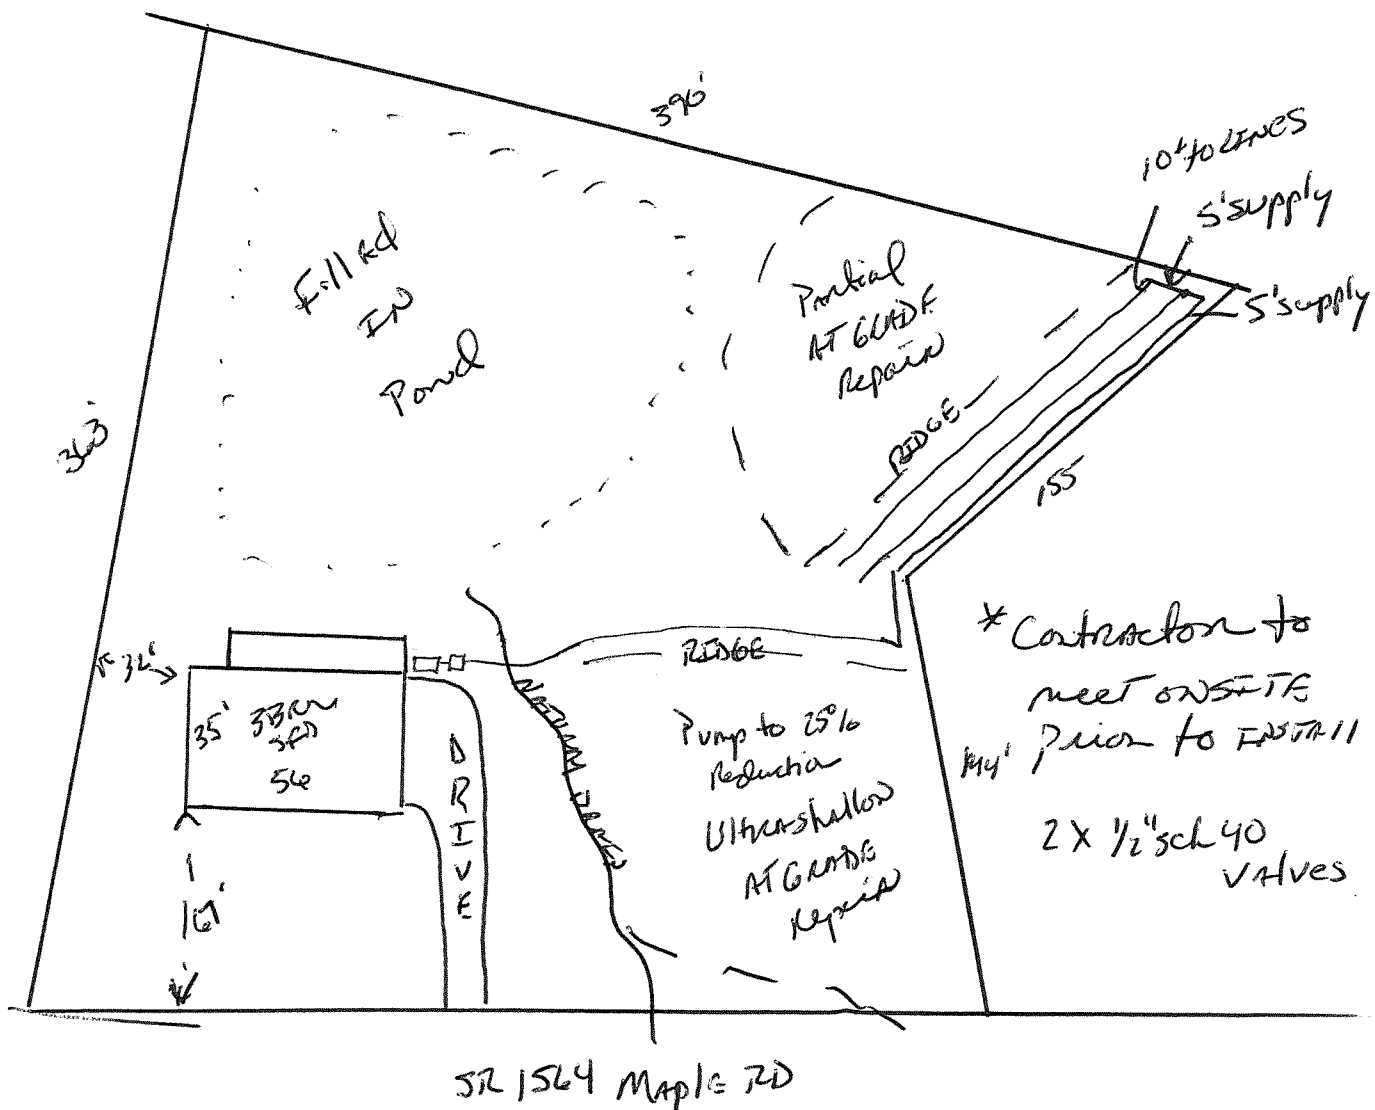 390'
10' to LINES
5' supply
5' supply
Filled
IN
Pond
Partial
AT GRADE
Repair
RIDGE
363'
155'
32'
RIDGE
35'
3BRM
SFD
56
DRIVE
NATURAL DRAIN
Pump to 25%
Reduction
Ultrashallow
AT GRADE
Repair
144'
* Contractor to
meet ONSITE
prior to INSTALL
2 X 1/2" sch 40
VALVES
SR 1564 Maple RD